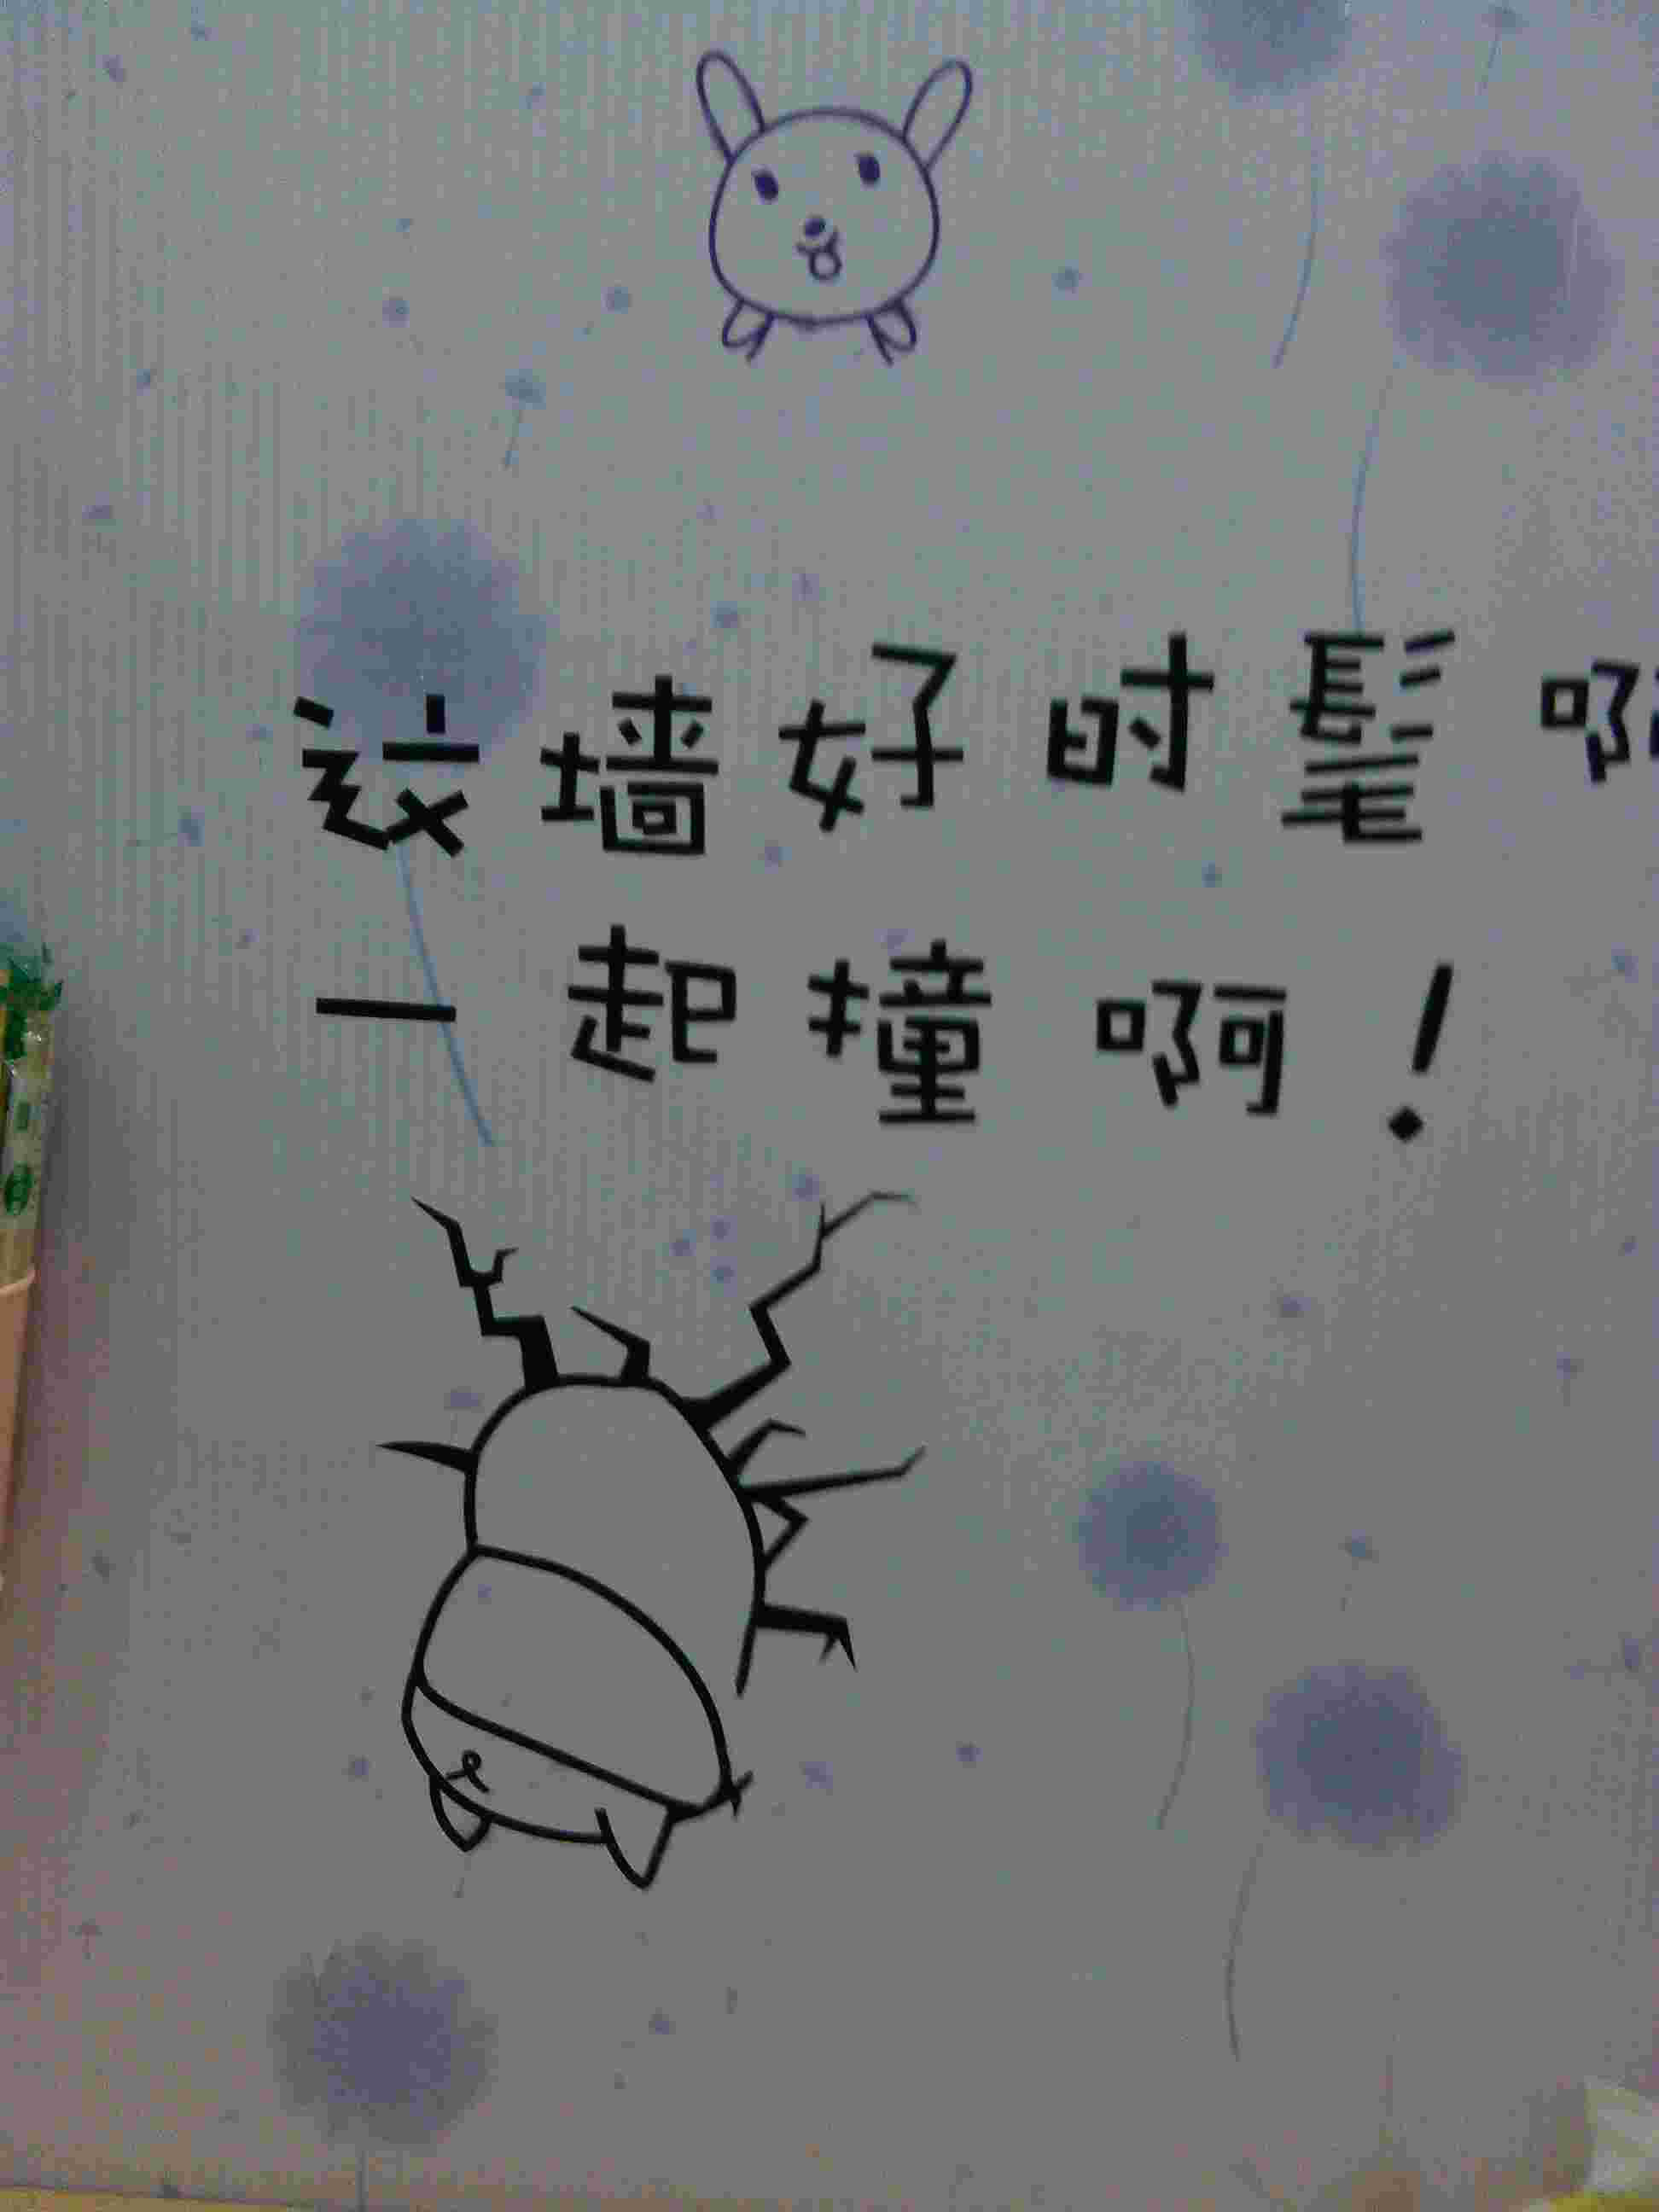 这墙好时髦啊
一起撞啊！